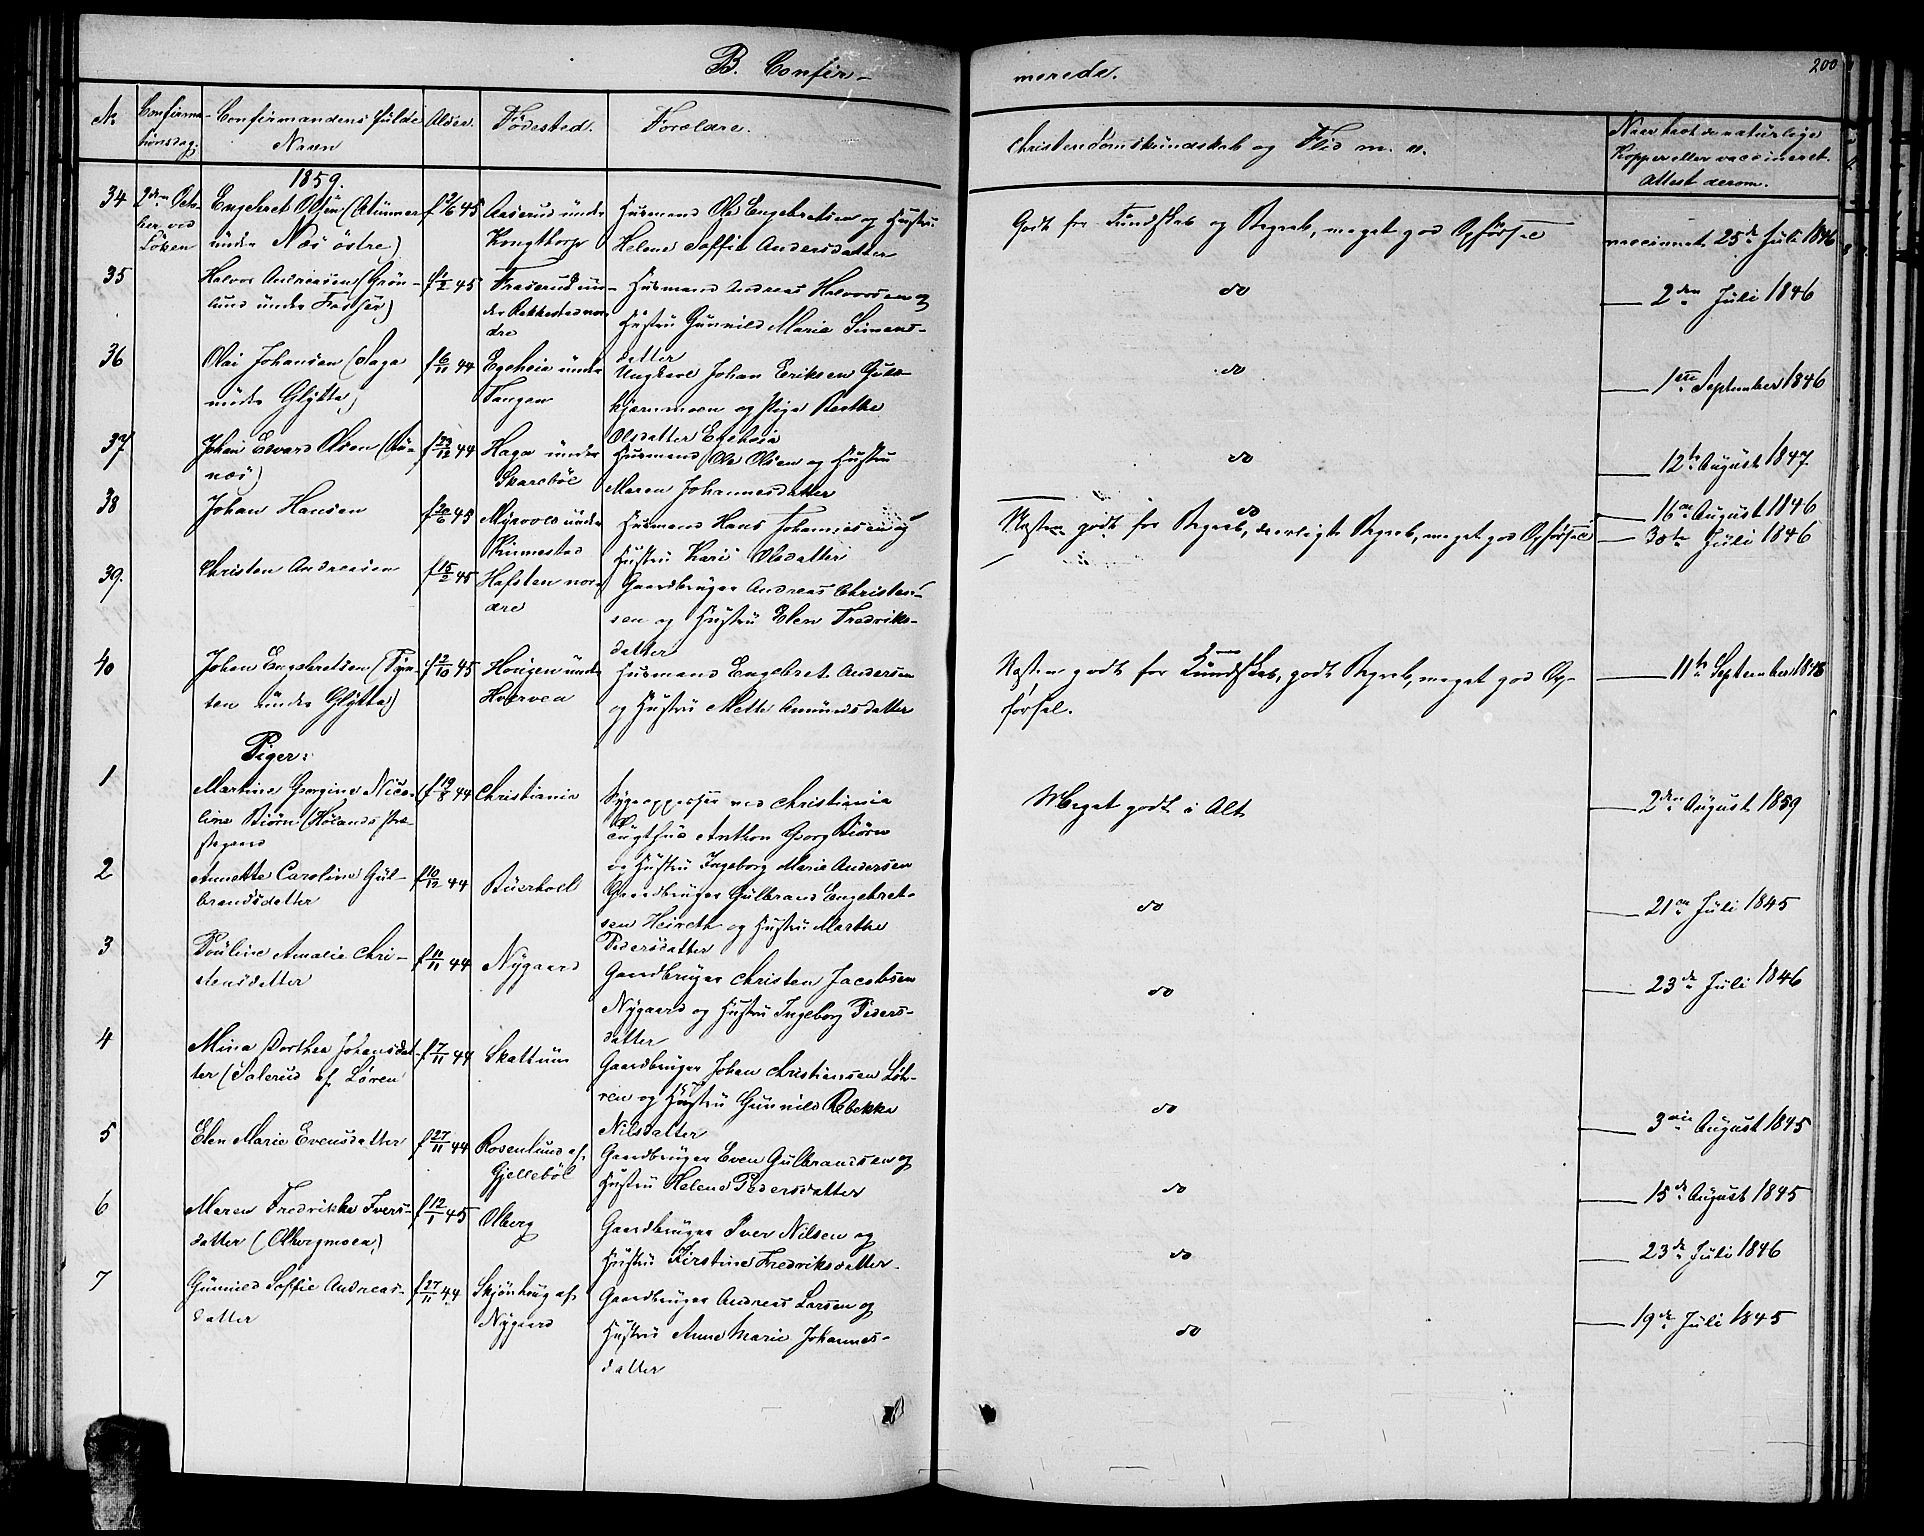 B. Confir-
merede.
200
No
Confirma-
tionsdag.
Confirmandens fulde
Navn
Alder.
Fødested.
Forældre.
Christendomskundskab og Flid m. v.
Naar havt de naturlige
Kopper eller vaccineret.
Attest derom.
1859.
34
2den Octo-
ber ved
Löken
Engebret Olsen
under Næs östre)
45
Aaserud under
Kongttorp
Huusmand Ole Engebretsen og Hustru
Helene Soffie Andersdatter
Godt for Kundskab og Begreb, meget god Opførsel
vaccineret 25de Juli 1846
35
Halvor Andreasen (Grön-
lund under Fosser)
f 1/2 45
Fraserud un-
der Rakkestad nor-
dre
Huusmand Andreas Halvorsen og
Hustru Gunnild Marie Simens-
datter
do
2den Juli 1846
36
Olai Johansen (Haga
under Glÿtta)
f 6/11 44
Egeheia under
Tangen
Ungkarl Johan Eriksen Guld-
kjernmoen og Pige Berthe
Olsdatter Egeheia
do
1ste September 1846
37
Johan Edvard Olsen (Au-
næs)
f 23/12 44
Haga under
Skarebøl
Huusmand Ole Olsen og Hustru
Maren Johannesdatter
do
12te August 1847
38
Johan Hansen
f 20/6 45
Myrvold under
Kinnestad
Huusmand Hans Johannesen og
Hustru Kari Olsdatter
do
16de August 1846
39.
Christen Andreasen
f 15/2 45
Hafsten nor-
dre
Gaardbruger Andreas Christen-
sen og Hustru Elen Fredriks-
datter
Næsten godt for Begreb, daarligt Begreb, meget god Opførsel
30te Juli 1846
40
Johan Engebretsen
ten under Glÿtta)
f 2/10 45
Hougen under
Huerven
Huusmand Engebret Andersen
og Hustru Mette Amundsdatter
Næsten godt for Kundskab, godt Begreb, meget god Op-
førsel.
11te September
Piger:
1
Martine Georgine Nico-
line Biørn (Hølands Præ-
stegaard
f 19/8 44
Christiania
ved Christiania
Tugthus Anthon Georg Biørn
og Hustru Ingeborg Marie Andersen
Meget godt i Alt
2den August 1859
2
Annette Caroline Gul-
brandsdatter
f 10/12 44
Buerhoel
Gaardbruger Gulbrand Engebret-
sen Heireth og Hustru Marthe
Pedersdatter
do
21de Juli 1845
3
Pouline Amalie Chri-
stensdatter
f 10/11 44
Nygaard
Gaardbruger Christen Jacobsen
Nygaard og Hustru Ingeborg Peders-
datter
do
23de Juli 1846
4
Mina Dorthea Johansdat-
ter (Salerud af Løren
f 7/11 44
Skattum
Gaardbruger Johan Christiansen Løh-
ren og Hustru Gunnild Rebekka
Nilsdatter
do
3die August 1845
5
Elen Marie Evensdatter
f 27/11 44
Rosenlund af
Gjellebøl
Gaardbruger Even Gulbrandsen og
Hustru Helene Pedersdatter
do
15de August 1845
6
Maren Fredrikke Ivers-
datter (Olbergmoen)
f 12/1 45
Olberg
Gaardbruger Iver Nilsen og
Hustru Kirstine Fredriksdatter.
do
23de Juli 1846
7
Gunnild Soffie Andreas-
datter
f 27/11 44
Skjönhoug af
Nygaard
Gaardbruger Andreas Larsen og
Hustru Anne Marie Johannes-
datter
do
19de Juli 1845